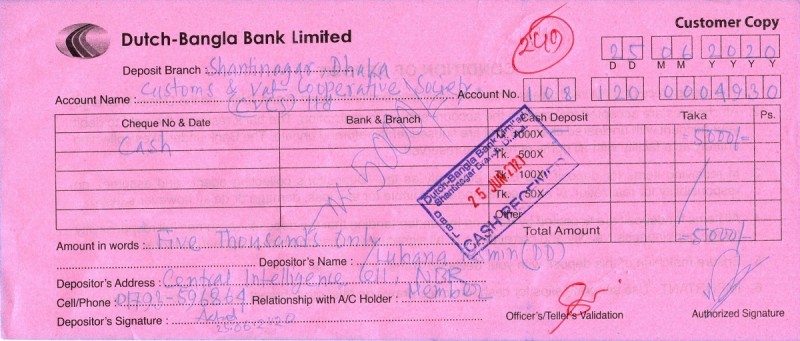 Customer Copy
Dutch-Bangla Bank Limited
25 06 2020
D D M M Y Y Y Y
Deposit Branch : Shantinagar, Dhaka
Account Name : Customs & Vat Cooperative Society
(CVCS) Ltd
Account No. 108 120 0004930
Cheque No & Date Bank & Branch Cash Deposit Taka Ps.
Cash Tk. 1000X =5000/-
Tk. 500X
Tk. 100X
Tk. 50X
Other
Total Amount =5000/-
Dutch-Bangla Bank Limited
Shantinagar Branch, Dhaka
25 JUN
CASH RECEIVED
Amount in words : Five Thousands Only
Depositor's Name : (DD)
Depositor's Address : Central Intelligence Cell, NBR
Cell/Phone : Relationship with A/C Holder : Member
Depositor's Signature :
Officer's/Teller's Validation Authorized Signatory